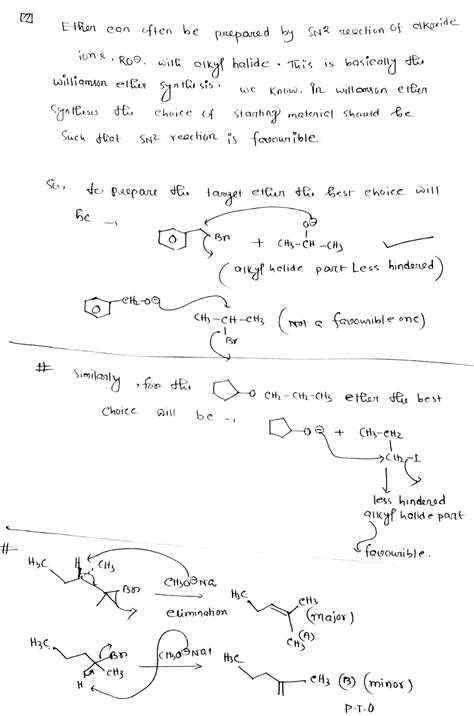 7
Ether can often be prepared by SN2 reaction of alkoxide
ions, RO⊖. with alkyl halide. This is basically the
williamson ether synthesis. we know. In willamson ether
synthesis the choice of starting material should be
such that SN2 reaction is favourible.
So, to prepare the target ether the best choice will
be →
Br + CH3-CH-CH3
O⊖
(alkyl halide part Less hindered)
CH2-O⊖ CH3-CH-CH3 (Not a favourible one)
Br
# Similarly, for the O CH2-CH2-CH3 ether the best
choice will be →
O⊖ + CH3-CH2
CH2-I
less hindered
alkyl halide part
favourible.
#
H3C H CH3 Br CH3O⊖Na H3C CH3 (major)
elimination CH3 (A)
H3C Br CH3 H CH3O⊖Na+ H3C CH3 (B) (minor)
P.T.O